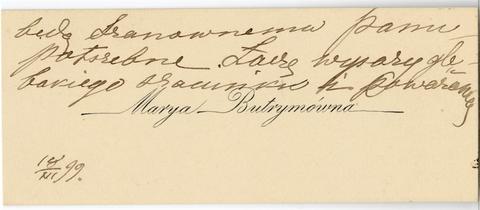 będą Szanownemu panu
potrzebne. Łączę wyrazy głę-
bokiego szacunku i poważania
Marya Butrymówna
XI 99.